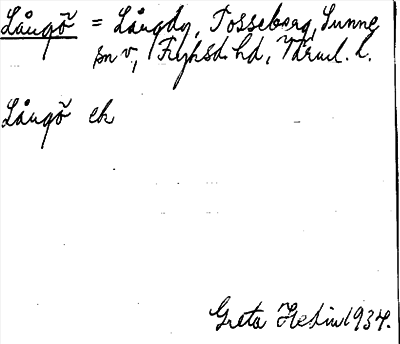 Långö̃ = Långö, Tosseberg, Sunne
sn v, Fryksd. hd, Värml. l.
Långö̃ ek
Greta Hedin 1934.